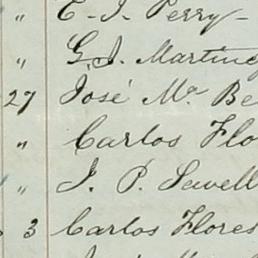 " E. I. Perry -
" G. I. Martine
27 José Ma. Be
" Carlos Flo
" J. P. Sewell
3 Carlos Flores